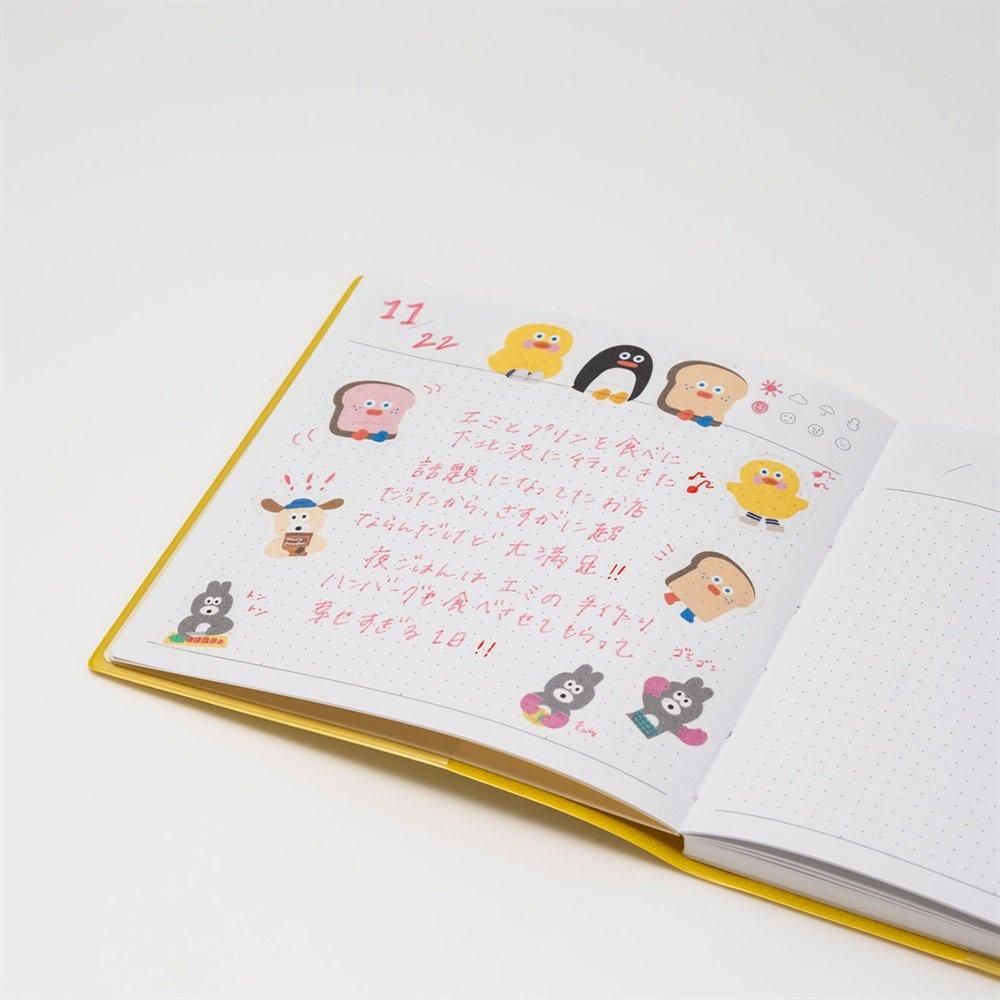 11/22
エミとプリンを食べに
下北沢に行ってきた
話題になってたお店
だったから、さすがに超
ならんだけど大満足!!
夜ごはんは エミの 手作り
ハンバーグも食べさせてもらって
幸せすぎる1日!!
!!!
トン
トン
ゴシゴシ